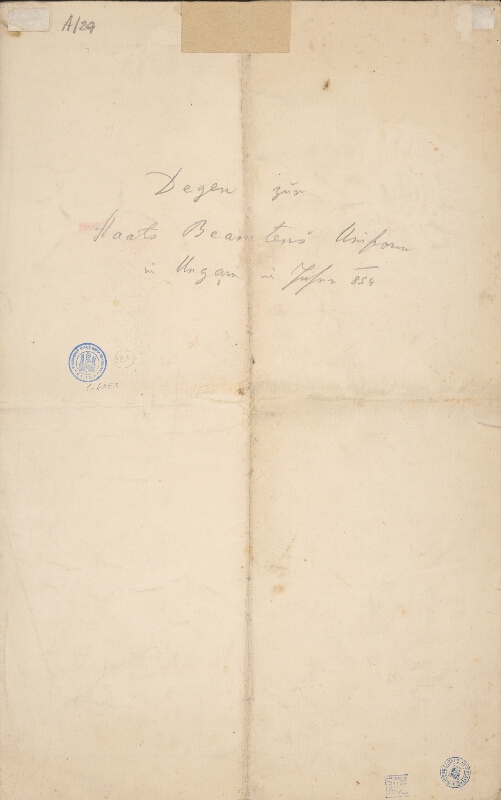 A/29
Degen zur
Staats Beamtens Uniform
in Ungarn in Jahre 854